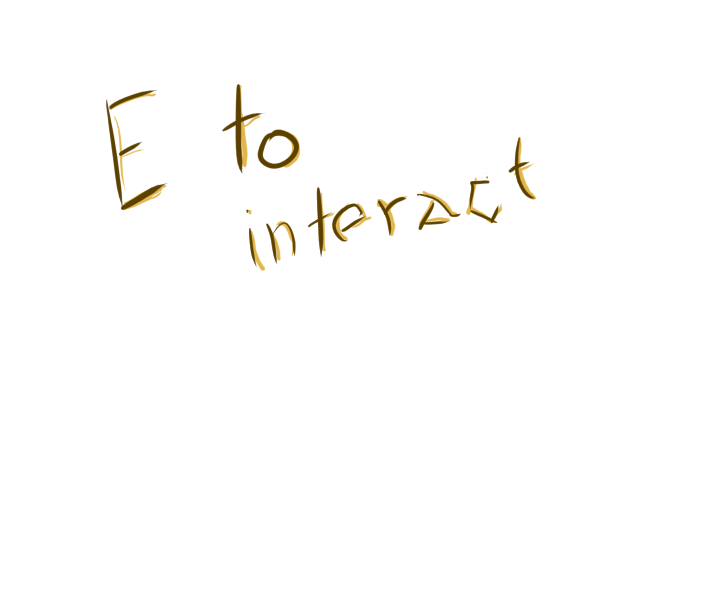 E to
interact